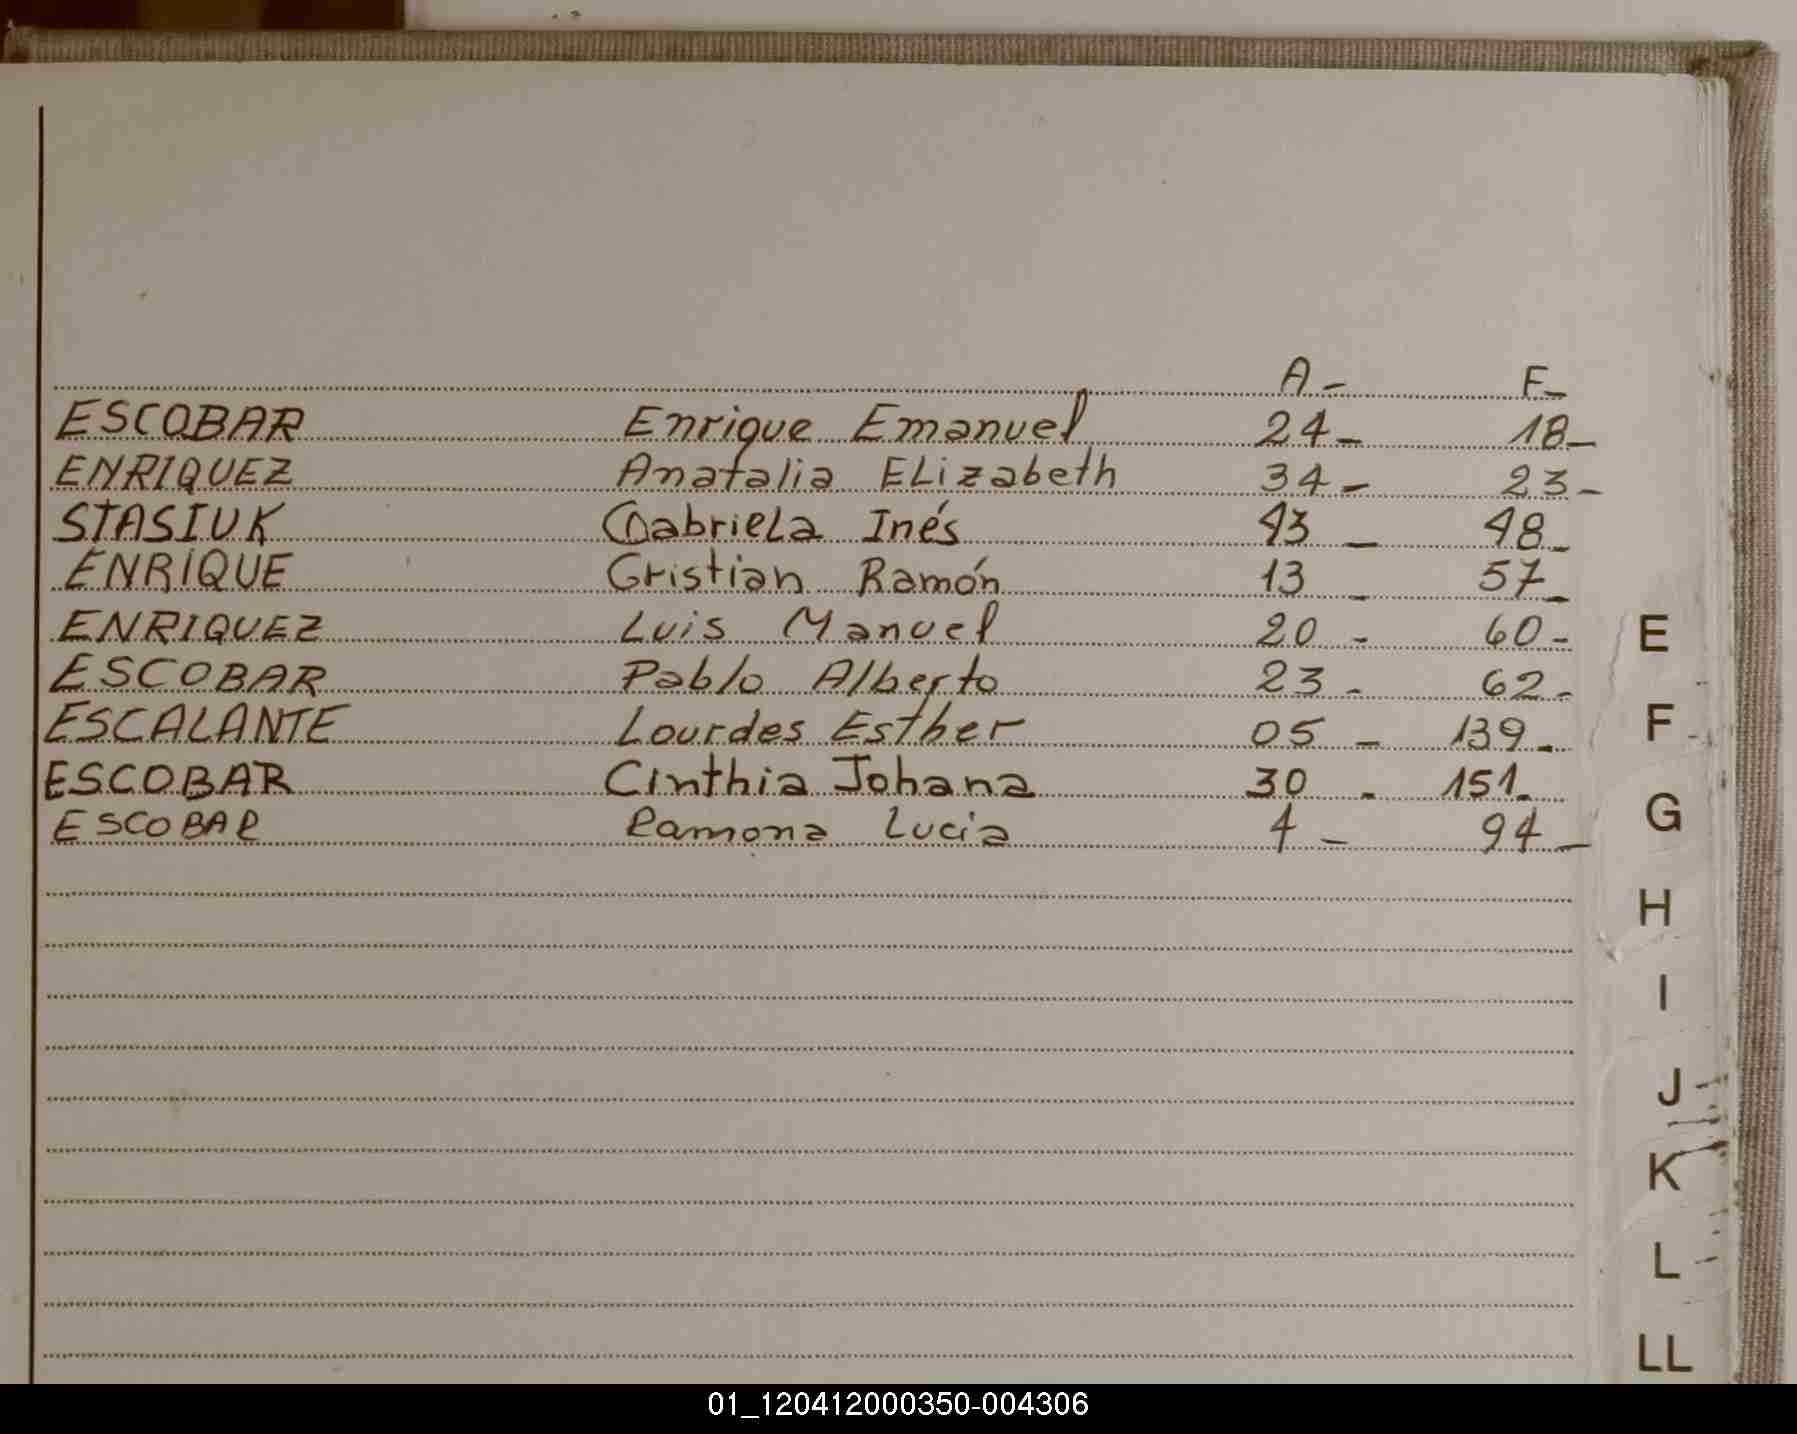 A- F-
ESCOBAR Enrique Emanuel 24- 18-
ENRIQUEZ Anatalia ELizabeth 34- 23-
STASIUK Gabriela Inés 43- 48-
ENRIQUE Cristian Ramón 13- 57-
ENRIQUEZ Luis Manuel 20- 60-
ESCOBAR Pablo Alberto 23- 62-
ESCALANTE Lourdes Esther 05- 139-
ESCOBAR Cinthia Johana 30- 151-
ESCOBAR Ramona Lucia 4- 94-
E
F
G
H
I
J
K
L
LL
01_120412000350-004306